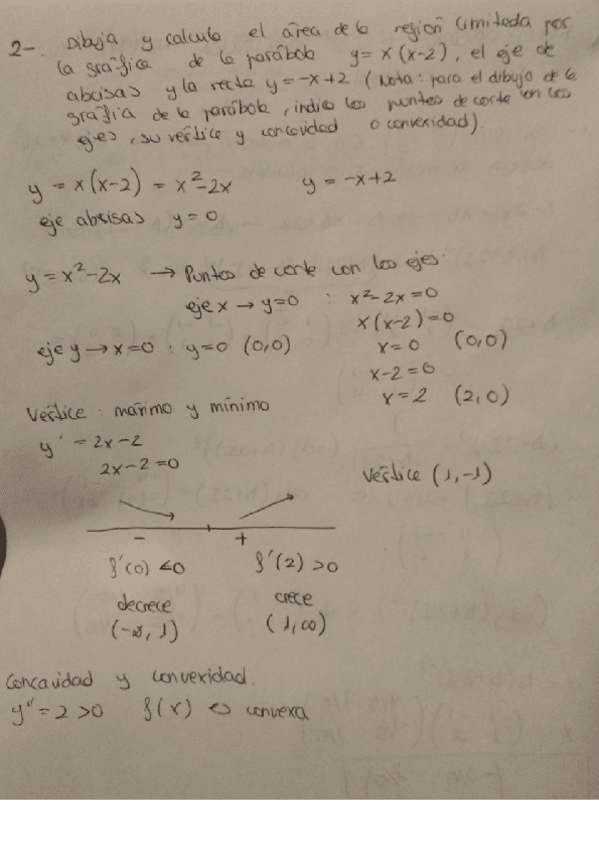 2-. Dibuja y calcula el área de la región limitada por
la gráfica de la parábola y = x(x-2), el eje de
abcisas y la recta y = -x+2 (Nota: para el dibujo de la
gráfia de la parábola, indica los puntos de corte con los
ejes, su vértice y concavidad o convexidad).
y = x(x-2) = x²-2x y = -x+2
eje abcisas y=0
y = x²-2x → Puntos de corte con los ejes:
eje x → y=0 : x²-2x=0
x(x-2)=0
eje y → x=0 : y=0 (0,0) x=0 (0,0)
x-2=0
x=2 (2,0)
Vértice: máximo y mínimo
y' = 2x-2
2x-2=0
Vértice (1,-1)
- +
f'(0) <0 f'(2) >0
decrece crece
(-∞, 1) (1, ∞)
Concavidad y convexidad.
y''=2>0 f(x) es convexa